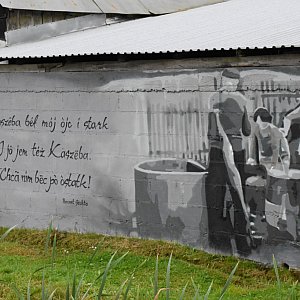 Kaszëba béł mój òjc i stark
I jô jem téż Kaszëba.
Chcã nim bëc pò òstatk!